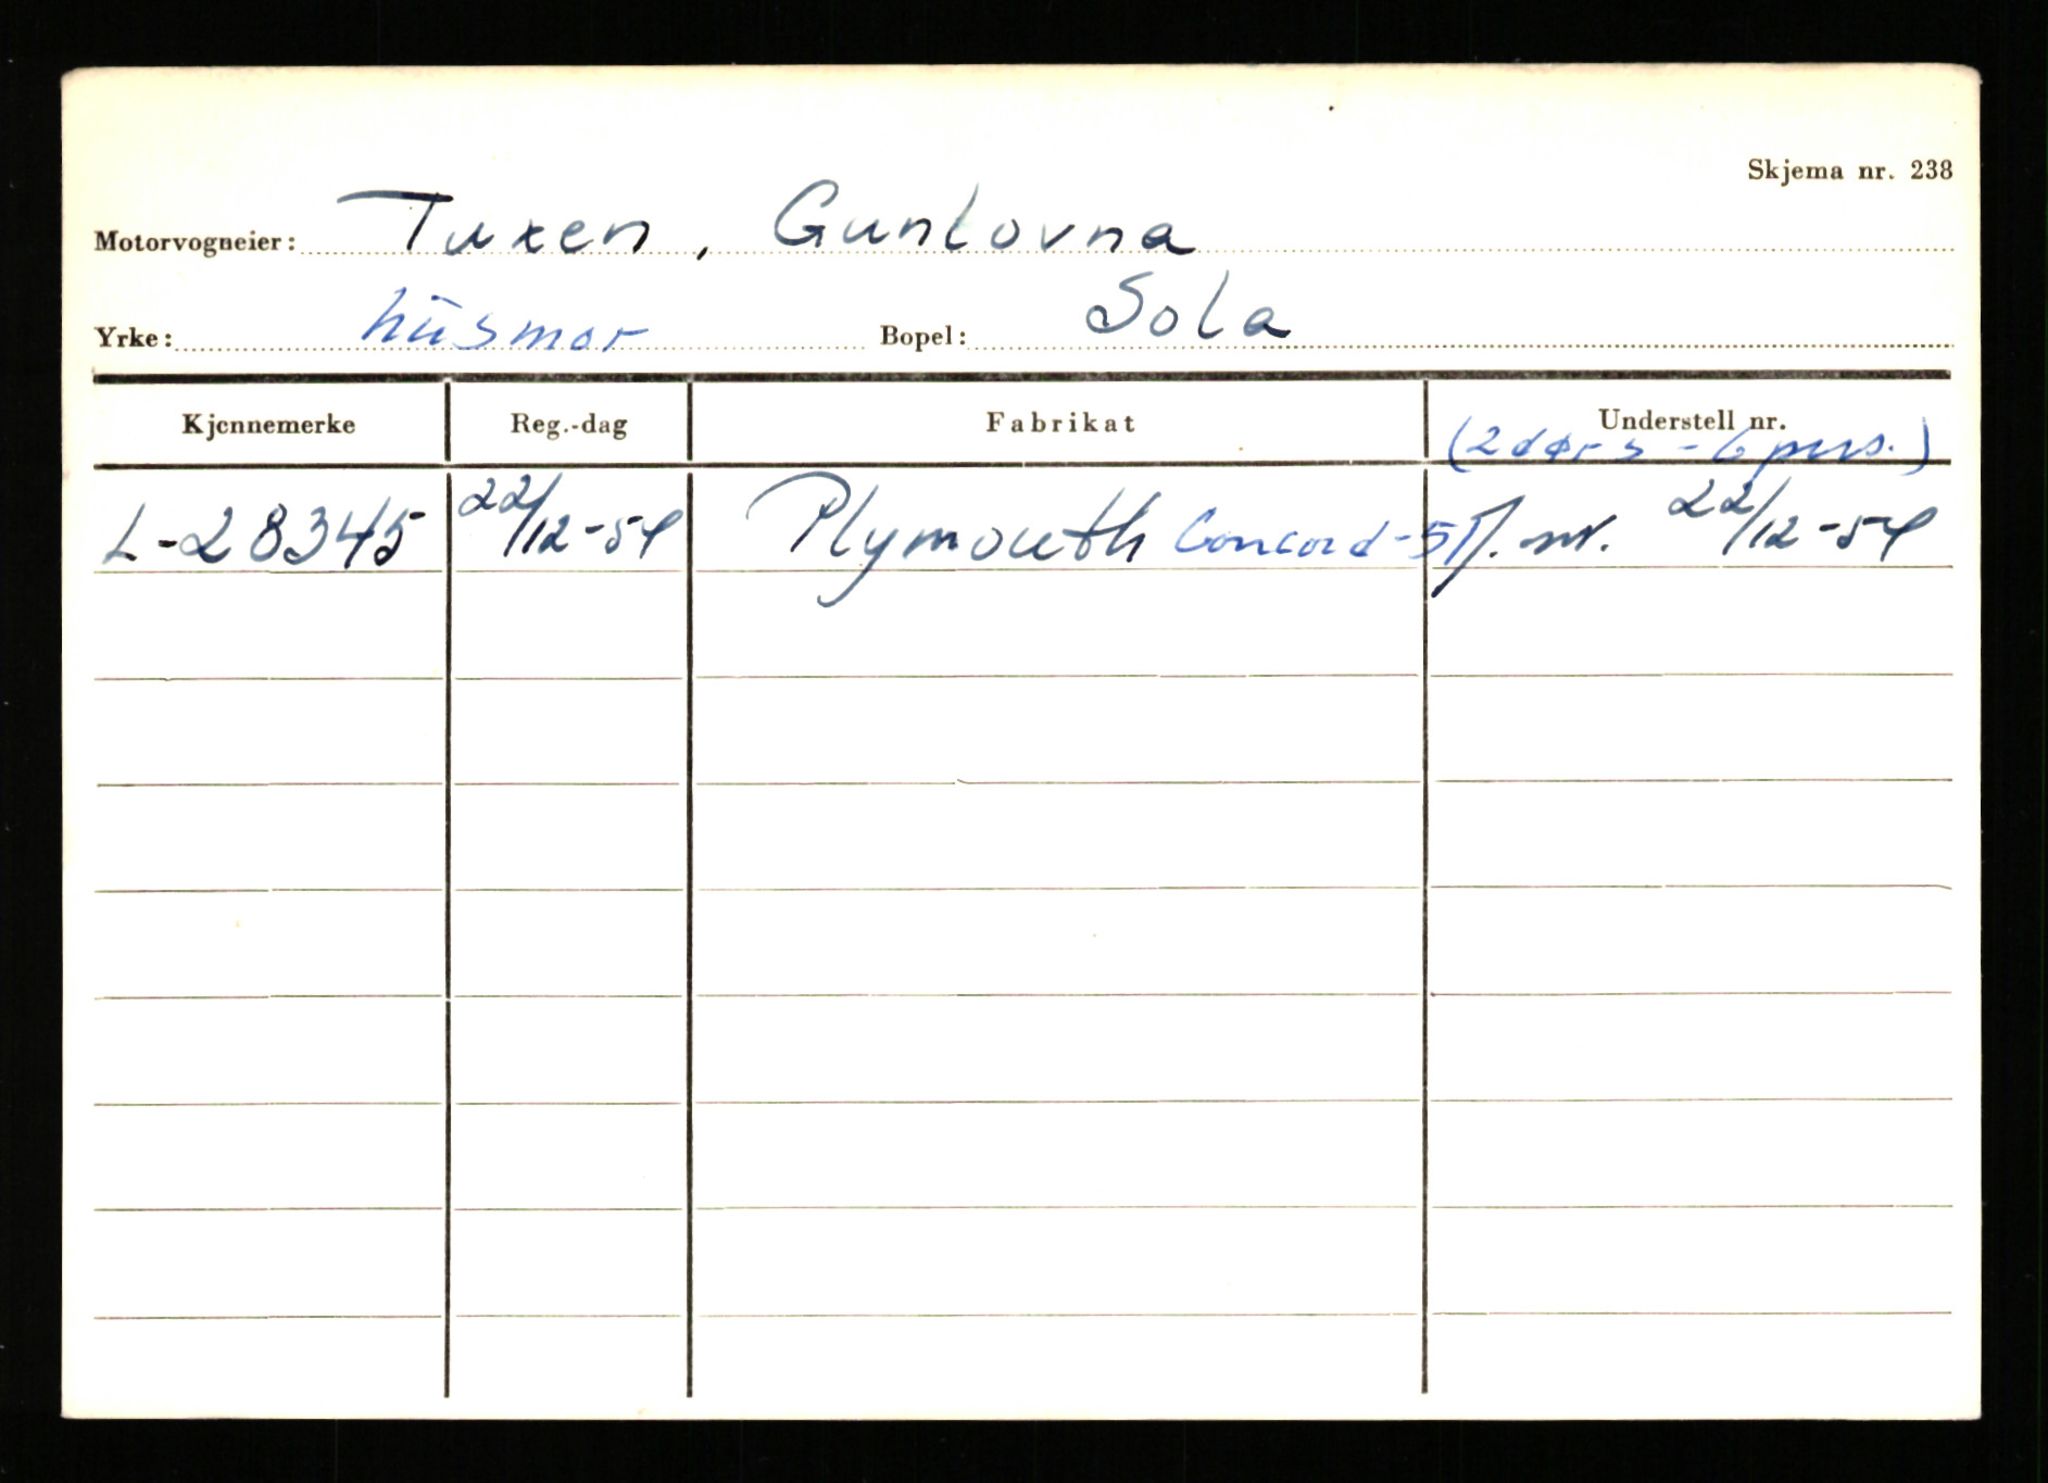 Skjema nr. 238
Motorvogneier: Tuxen, Gunlovna
Yrke: husmor Bopel: Sola
Kjennemerke Reg.-dag Fabrikat Understell nr.
(2dørs - 6 pers.)
L-28345 22/12-54 Plymouth Concord-51 nr. 22/12-54